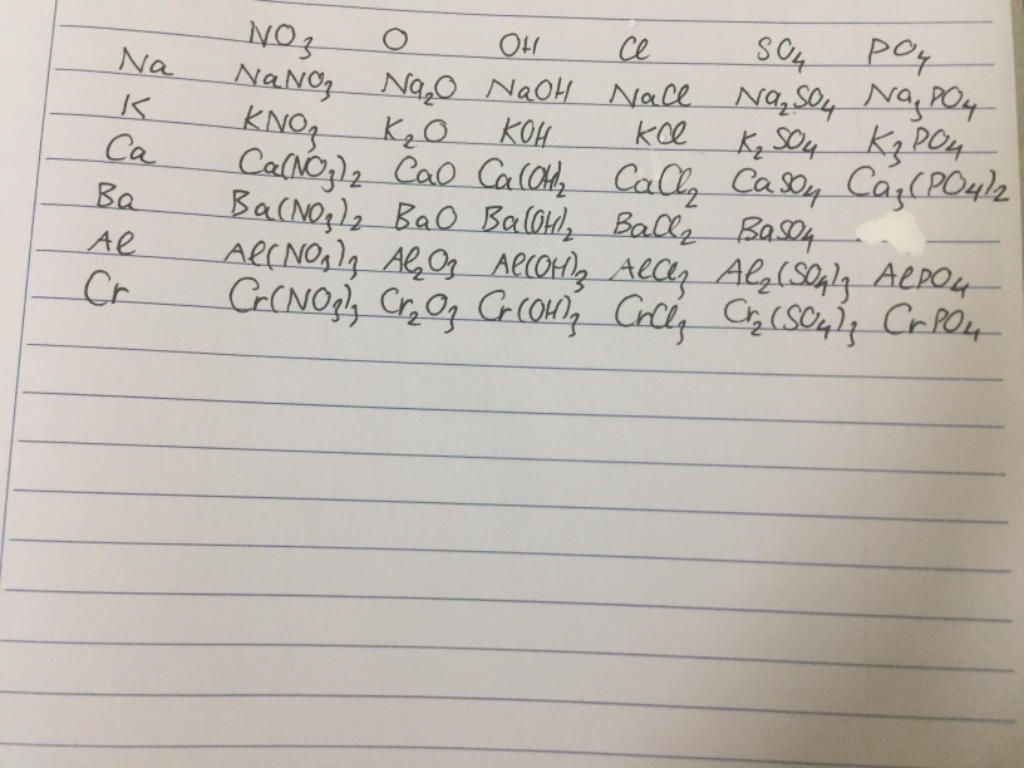 NO₃ O OH Cl SO₄ PO₄
Na NaNO₃ Na₂O NaOH NaCl Na₂SO₄ Na₃PO₄
K KNO₃ K₂O KOH KCl K₂SO₄ K₃PO₄
Ca Ca(NO₃)₂ CaO Ca(OH)₂ CaCl₂ CaSO₄ Ca₃(PO₄)₂
Ba Ba(NO₃)₂ BaO Ba(OH)₂ BaCl₂ BaSO₄
Al Al(NO₃)₃ Al₂O₃ Al(OH)₃ AlCl₃ Al₂(SO₄)₃ AlPO₄
Cr Cr(NO₃)₃ Cr₂O₃ Cr(OH)₃ CrCl₃ Cr₂(SO₄)₃ CrPO₄